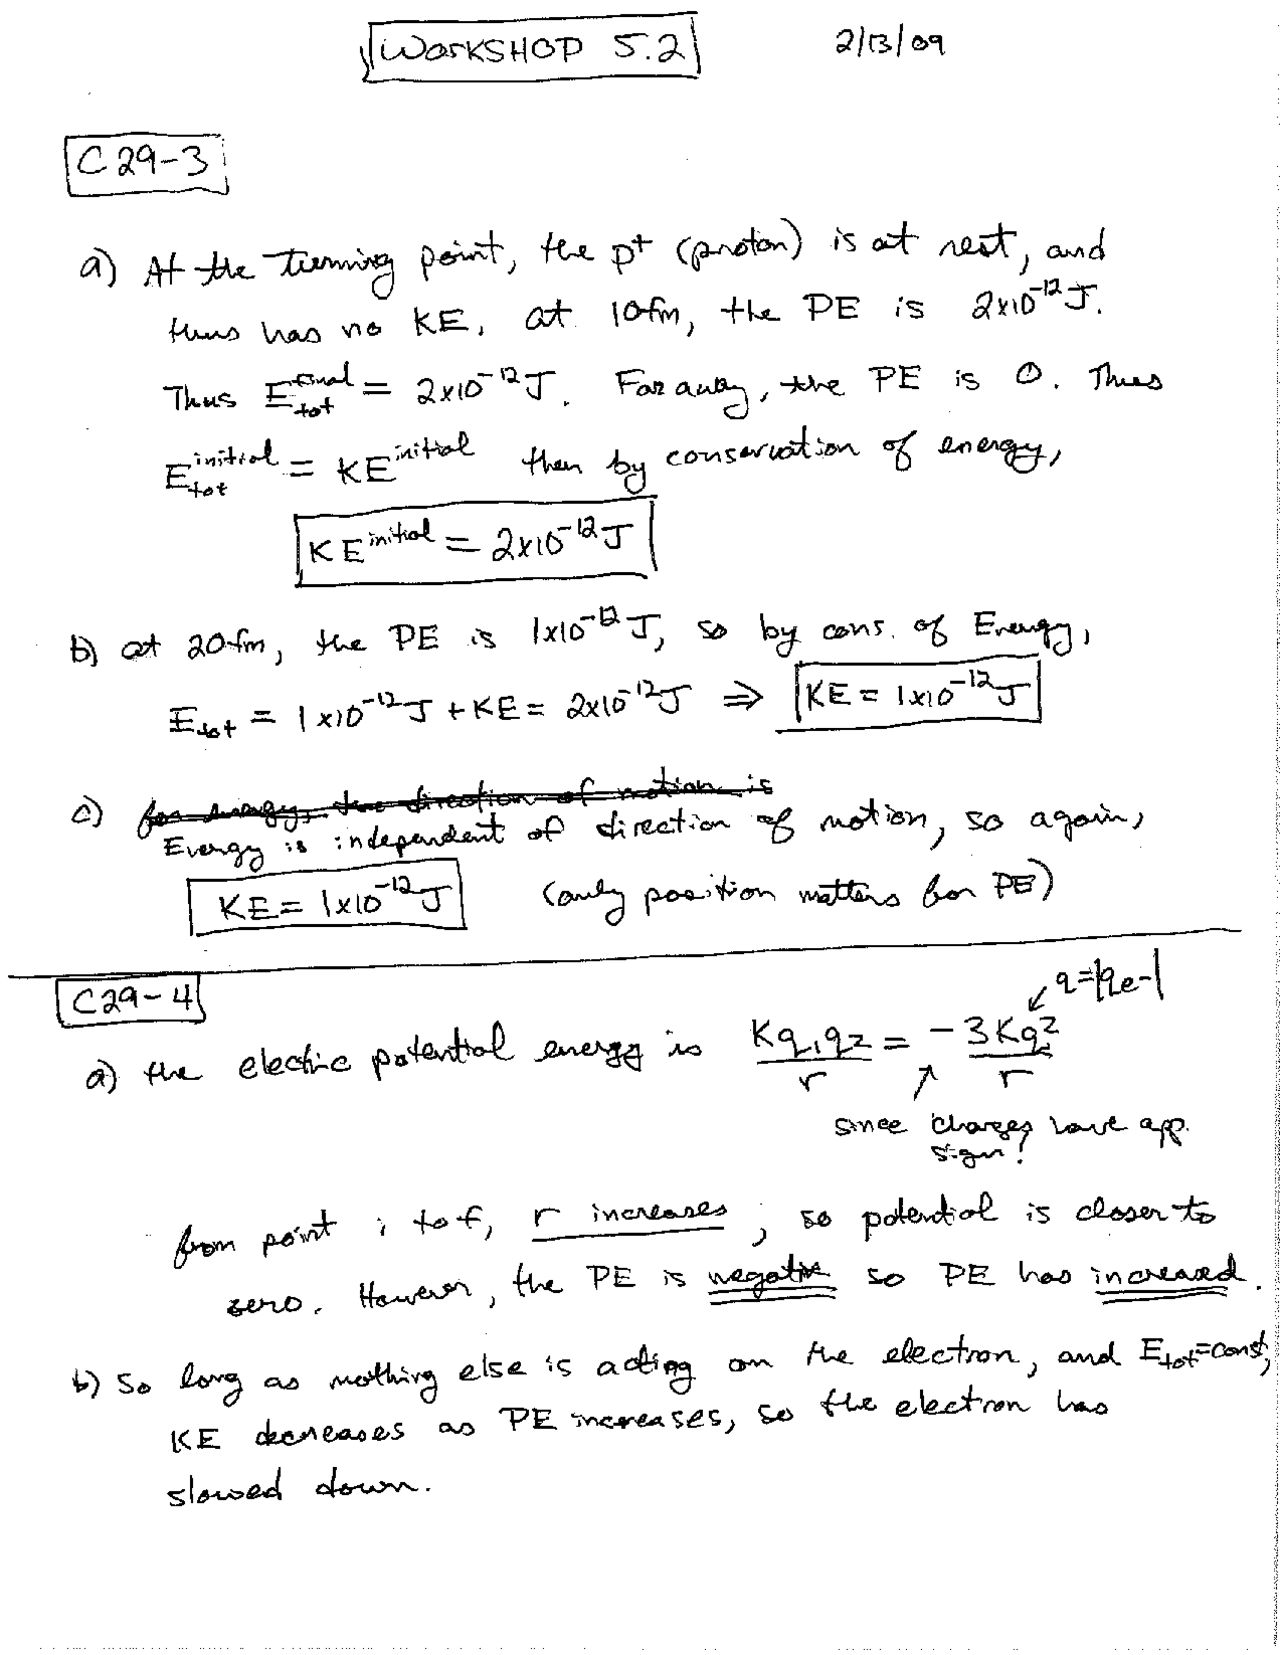 WORKSHOP 5.2 2/13/09
C29-3
a) At the turning point, the p⁺ (proton) is at rest, and
thus has no KE. at 10fm, the PE is 2x10⁻¹² J.
Thus E_tot^final = 2x10⁻¹² J. Far away, the PE is 0. Thus
E_tot^initial = KE^initial then by conservation of energy,
KE^initial = 2x10⁻¹² J
b) at 20fm, the PE is 1x10⁻¹² J, so by cons. of Energy,
E_tot = 1x10⁻¹² J + KE = 2x10⁻¹² J ⇒ KE = 1x10⁻¹² J
c) for energy, the direction of motion is
Energy is independent of direction of motion, so again,
KE = 1x10⁻¹² J (only position matters for PE)
C29-4
q=|qe-|
a) the electric potential energy is Kq₁q₂/r = -3Kq²/r
since charges have opp.
sign!
from point i to f, r increases, so potential is closer to
zero. However, the PE is negative so PE has increased.
b) So long as nothing else is acting on the electron, and E_tot=const,
KE decreases as PE increases, so the electron has
slowed down.